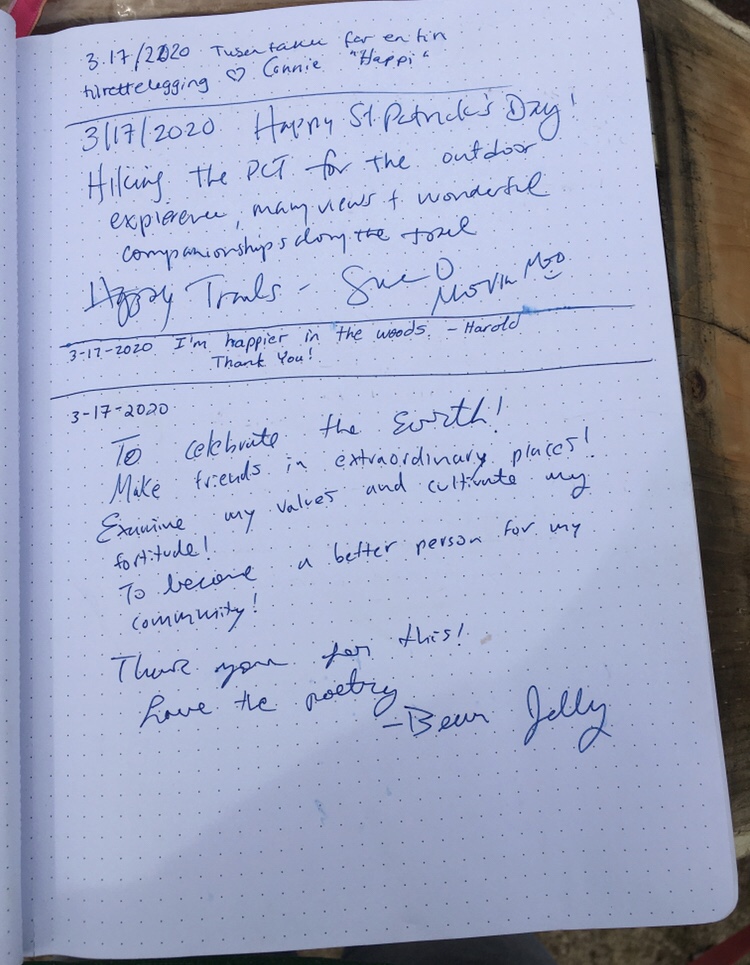 3.17/2020 Tusen takk for en fin
turettelegging ♡ Connie "Happi"
3/17/2020 Happy St. Patrick's Day!
Hiking the PCT for the outdoor
experience, many views + wonderful
companionships along the trail
Happy Trails - Sue D
Movin Moo
3-17-2020 I'm happier in the woods. - Harold
Thank You!
3-17-2020
To celebrate the Earth!
Make friends in extraordinary places!
Examine my values and cultivate my
fortitude!
To become a better person for my
community!
Thank you for this!
Love the poetry
- Bear Jelly